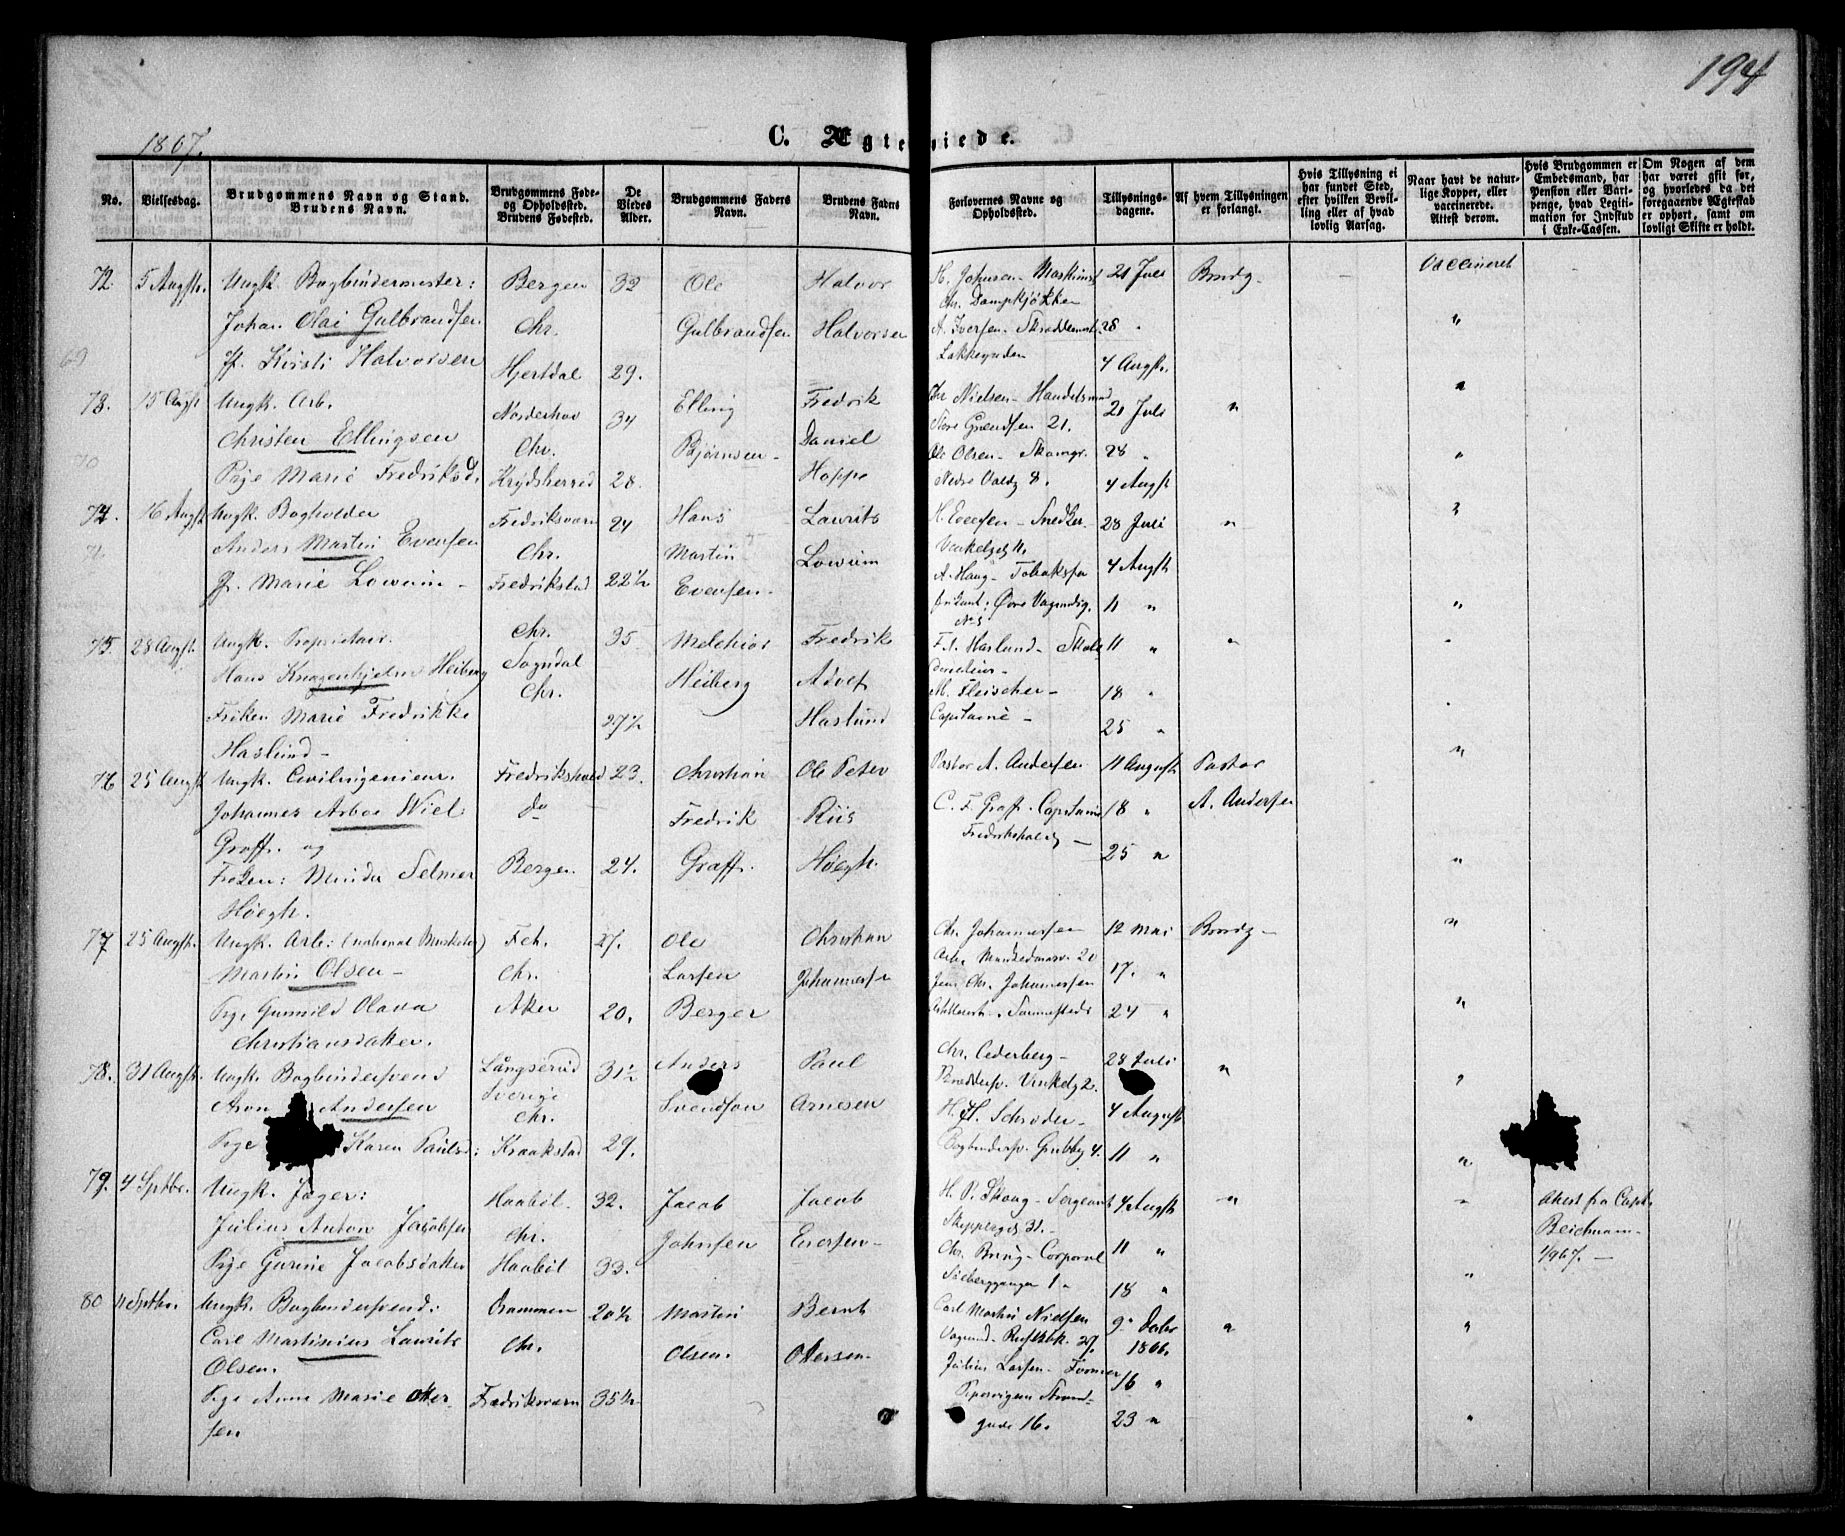 194
1867.
C. Ægteviede.
No.
Vielsesdag.
Brudgommens Navn og Stand.
Brudens Navn.
Brudgommens Føde-
og Opholdssted.
Brudens Fødested.
De
Viedes
Alder.
Brudgommens Faders
Navn.
Brudens Faders
Navn.
Forlovernes Navne og
Opholdssted.
Tillysnings-
dagene.
Af hvem Tillysningen
er forlangt.
Hvis Tillysning ei
har fundet Sted,
efter hvilken Bevil-
ling eller af hvad
lovlig Aarsag.
Naar havt de natur-
lige Kopper, eller
vaccinerede.
Attest derom.
Hvis Brudgommen er
Embedsmand, har
Pension eller Vart-
penge, hvad Legiti-
mation for Indskud
i Enke-Cassen.
Om Nogen af dem
har været gift før,
og hvorledes da det
foregaaende Ægteskab
er ophørt, samt om
lovligt Skifte er holdt.
72. 5 Augst. Ungk. Bogbindermester: Bergen 32 Ole Halvor H. Johnsen - Maskinist 21 Juli Brudg - Vaccineret
Chr. Dampkjøkken
Johan Olai Gulbrandsen Chr. Gulbrandsen Halvorsen A. Iversen - 28 "
69 P. Kirsti Halvorsen Hjertdal 29. Lakkegaden 4 Augst.
73. 15 Augst Ungk. Arb. Norderhov 34 Elling Fredrik Chr Nielsen - Handelsmand 21 Juli "
Christen Ellingsen Chr. Bjørnsen - Daniel Store Grændsen 21.
70 Ole Olsen - Skomgr. 28 "
Pige Marie Fredriksd. Krydsherred 28. Hoppe Nedre Voldg 8. 4 Augst
74. 16 Augst Ungk. Bogholder Fredriksværn 24 Hans Laurits H. Evensen - Snedker 28 Juli "
Anders Martin Evensen Chr. Martin Lowum Vinkelgd 11. 4 Augst
71 Jfr. Marie Lowum - Fredrikstad 22½ Evensen - A. Haug - Tobaksfa
brikant: Øvre Vognmdg. 11 "
No 5
75. 28 Augst. Ungk. Proprietær. Chr. 35 Melchior Fredrik F. A. Haslund - 11 " "
Hans Knagenhjelm Heiberg Sogndal Heiberg Adolf
Chr. M. Fleischer - 18 "
Frøken Marie Fredrikke 27½ Haslund Capitaine - 25 "
Haslund -
76 25 Augst Ungk. Civilingenieur. Fredrikshald 23. Christian Ole Peter Pastor A. Andersen 11 Augst Pastor
Johannes Arboe Wiel do Fredrik Riis C. F. Graff. Capitaine 18 " A. Andersen
Graff. og Fredrikshald - 25 "
Frøken: Minda Selmer Bergen 24. Graff. Høegh.
Høegh.
77 25 Augst. Ungk. Arb: (national Musketer) Fet. 27. Ole Christian Chr. Johannesen 12 Mai Brudg -
Martin Olsen - Chr. Larsen Johannesen Arb. 20 17. "
Jens Chr. Johannesen
Pge. Gunnild Olava Aker 20. Berger 24 "
Christiansdatter.
78. 31 Augst. Ungk. Bogbindersvend Långserud 31½ Anders Paul Chr. Cederberg - 28 Juli "
Aron Andersen Sverige Svendson Arnesen Vinkelg 2.
Chr. H. H. Schrøder - 4 Augst
Pige Karen Paulsd: Kraakstad 29. Bogbindersv. Grubbg 4. 11 "
79. 4 Septbr. Ungk. Jæger: Haabøl. 32. Jacob Jacob H. P. Skoug - Sergeant 4 Augst " Attest fra Capt.
Julius Anton Jacobsen Chr. Johnsen Eversen - Skippergd. 31. - Beichmann -
Chr. Bruug - Corporal 11 " 1/9 67. -
Pige Gurine Jacobsdatter Haabøl 33. 18 "
80 11 Septbr. Ungk. Bogbindersvend: Drammen 20½ Martin Bernt Carl Martin Nielsen 9. Dcbr "
Carl Martinius Laurits Chr. Olsen. Ottersen - Vognmd - 27. 1866.
Olsen. Julius Larsen - 16 "
Pge Anna Marie Otter- Fredriksværn 35½ Pipervigen Strand-
sen gade 16. 23 "